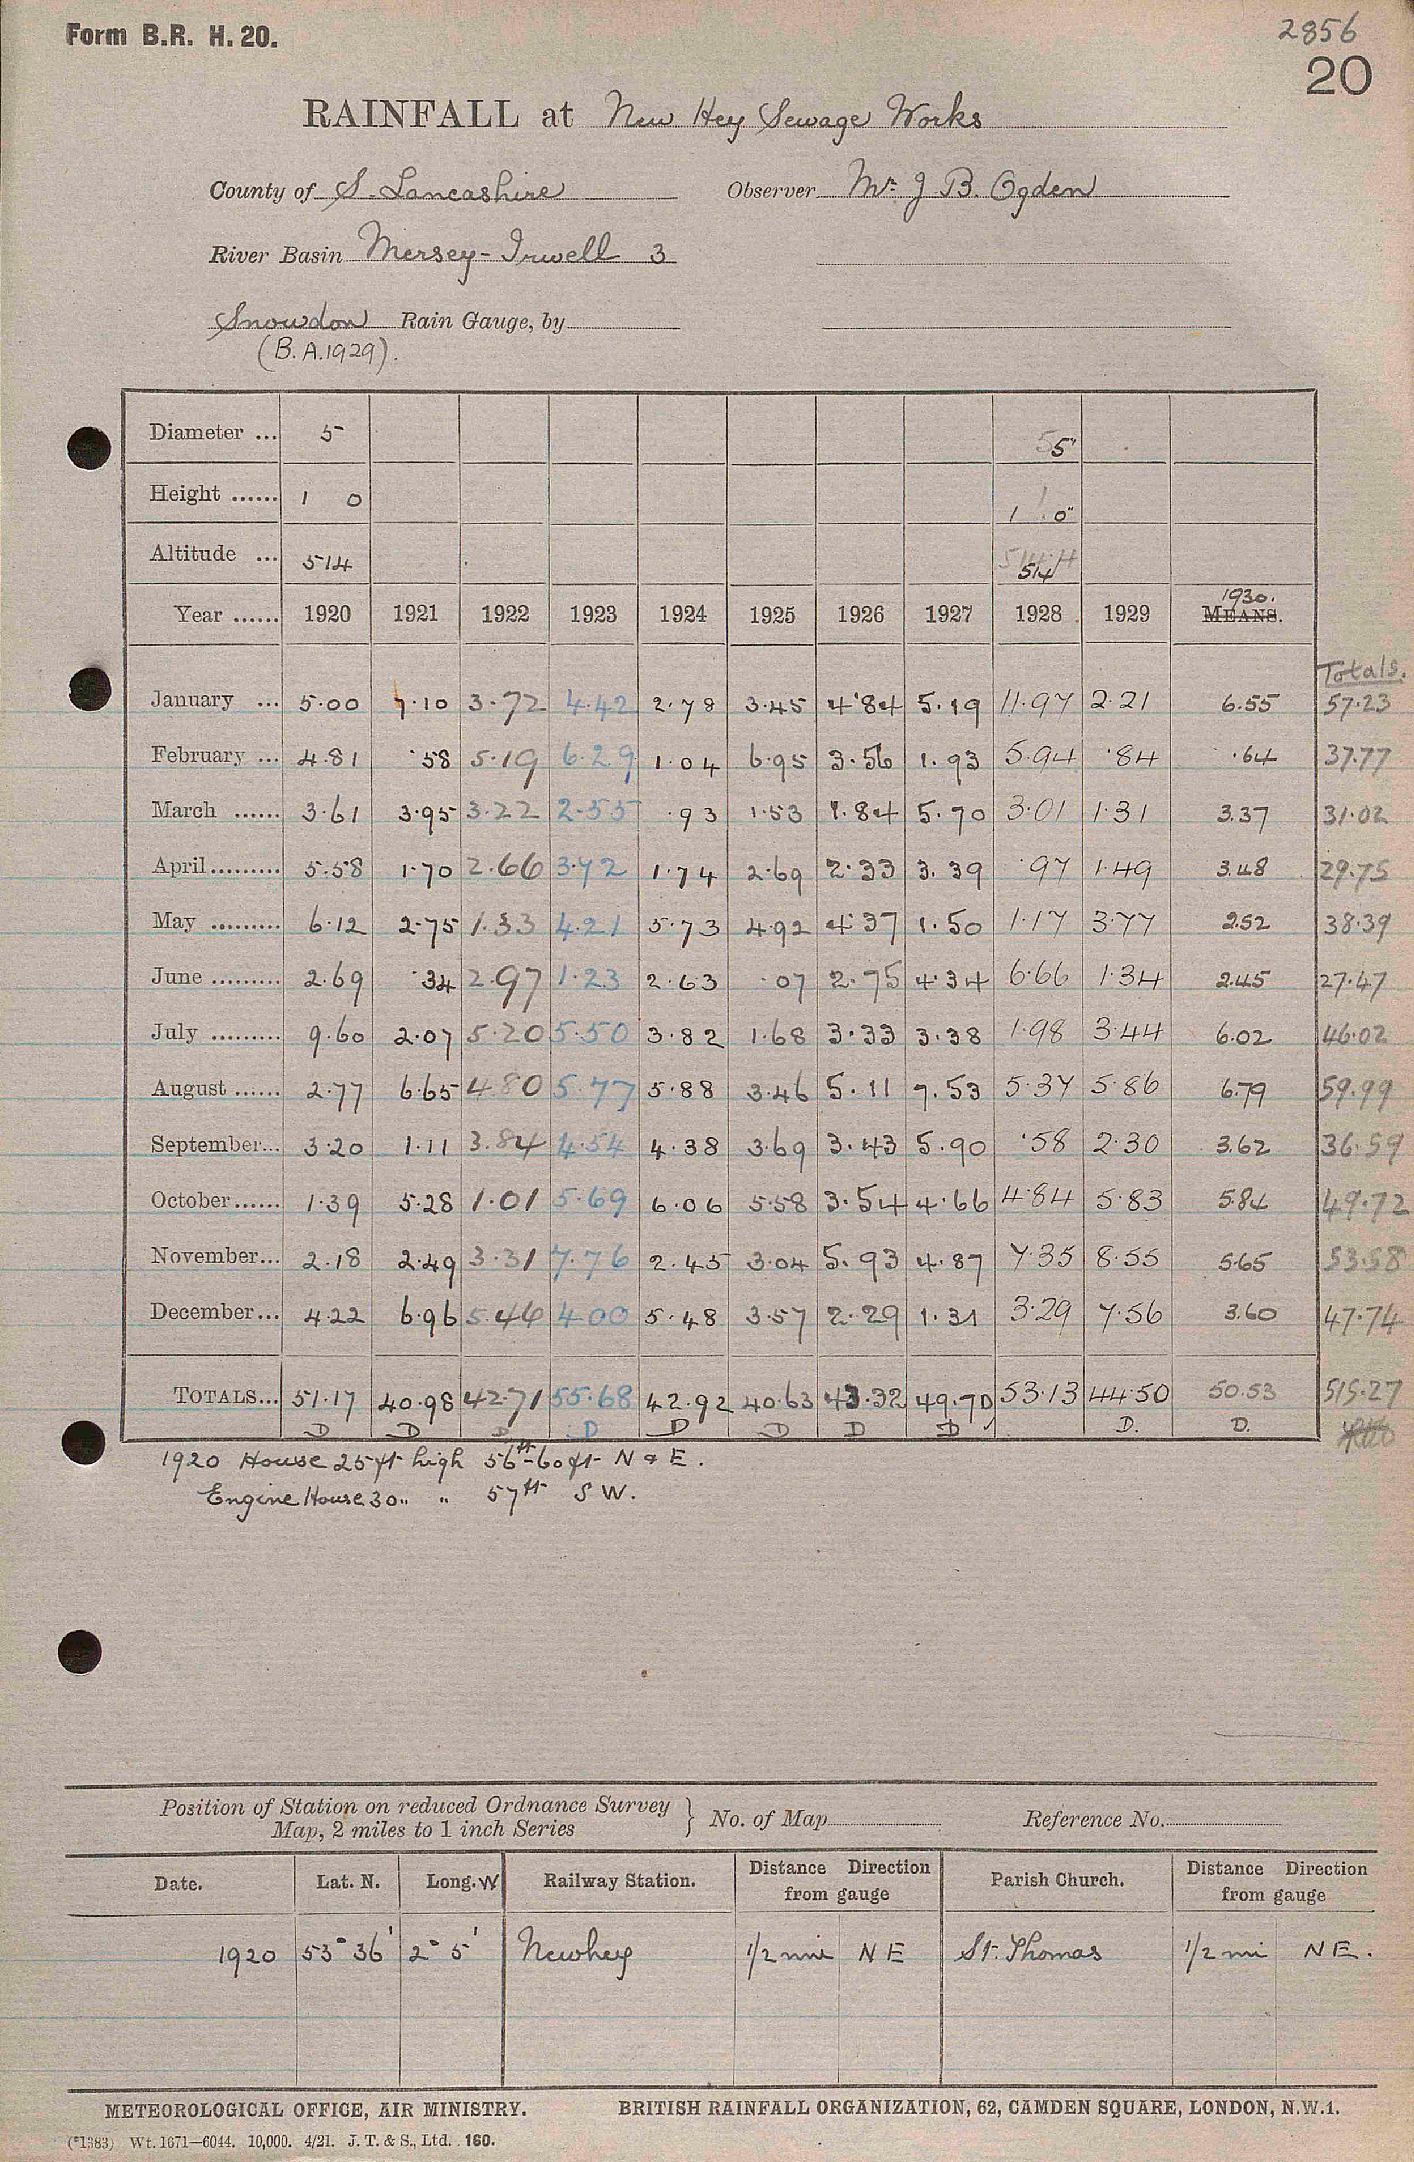 Form B.R. H. 20.
2856
20
RAINFALL at New Hey Sewage Works
County of S. Lancashire Observer Mr. J. B. Ogden
River Basin Mersey-Irwell 3
Snowdon Rain Gauge, by
(B.A.1929).
Diameter ... 5 5"
Height ...... 1 0 1 0"
Altitude ... 514 514
Year ...... 1920 1921 1922 1923 1924 1925 1926 1927 1928 1929 1930. MEANS.
Totals.
January ... 5.00 7.10 3.72 4.42 2.78 3.45 4.84 5.19 11.97 2.21 6.55 57.23
February ... 4.81 .58 5.19 6.29 1.04 6.95 3.56 1.93 5.94 .84 .64 37.77
March ...... 3.61 3.95 3.22 2.55 .93 1.53 1.84 5.70 3.01 1.31 3.37 31.02
April......... 5.58 1.70 2.66 3.72 1.74 2.69 2.33 3.39 .97 1.49 3.48 29.75
May ......... 6.12 2.75 1.33 4.21 5.73 4.92 4.37 1.50 1.17 3.77 2.52 38.39
June ......... 2.69 .34 2.97 1.23 2.63 .07 2.75 4.34 6.66 1.34 2.45 27.47
July ......... 9.60 2.07 5.20 5.50 3.82 1.68 3.33 3.38 1.98 3.44 6.02 46.02
August ...... 2.77 6.65 4.80 5.77 5.88 3.46 5.11 7.53 5.37 5.86 6.79 59.99
September... 3.20 1.11 3.84 4.54 4.38 3.69 3.43 5.90 .58 2.30 3.62 36.59
October...... 1.39 5.28 1.01 5.69 6.06 5.58 3.54 4.66 4.84 5.83 5.84 49.72
November... 2.18 2.49 3.31 7.76 2.45 3.04 5.93 4.87 7.35 8.55 5.65 53.58
December... 4.22 6.96 5.46 4.00 5.48 3.57 2.29 1.31 3.29 7.56 3.60 47.74
TOTALS... 51.17 40.98 42.71 55.68 42.92 40.63 43.32 49.70 53.13 44.50 50.53 515.27
D D D D D D D D D. D.
1920 House 25 ft high 56ft-60ft N & E.
Engine House 30 " " 57ft S W.
Position of Station on reduced Ordnance Survey
Map, 2 miles to 1 inch Series } No. of Map Reference No.
Date. Lat. N. Long. W Railway Station. Distance Direction from gauge Parish Church. Distance Direction from gauge
1920 53° 36' 2° 5' Newhey 1/2 mi N E St. Thomas 1/2 mi N E.
METEOROLOGICAL OFFICE, AIR MINISTRY. BRITISH RAINFALL ORGANIZATION, 62, CAMDEN SQUARE, LONDON, N.W.1.
(*1383) Wt. 1671—6044. 10,000. 4/21. J. T. & S., Ltd. 160.